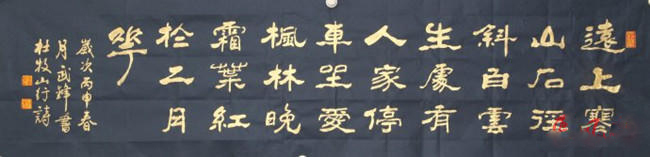 遠上寒
山石徑
斜白雲
生處有
人家停
車坐愛
楓林晚
霜葉紅
於二月
花
歲次丙申春
月武烽書
杜牧山行詩